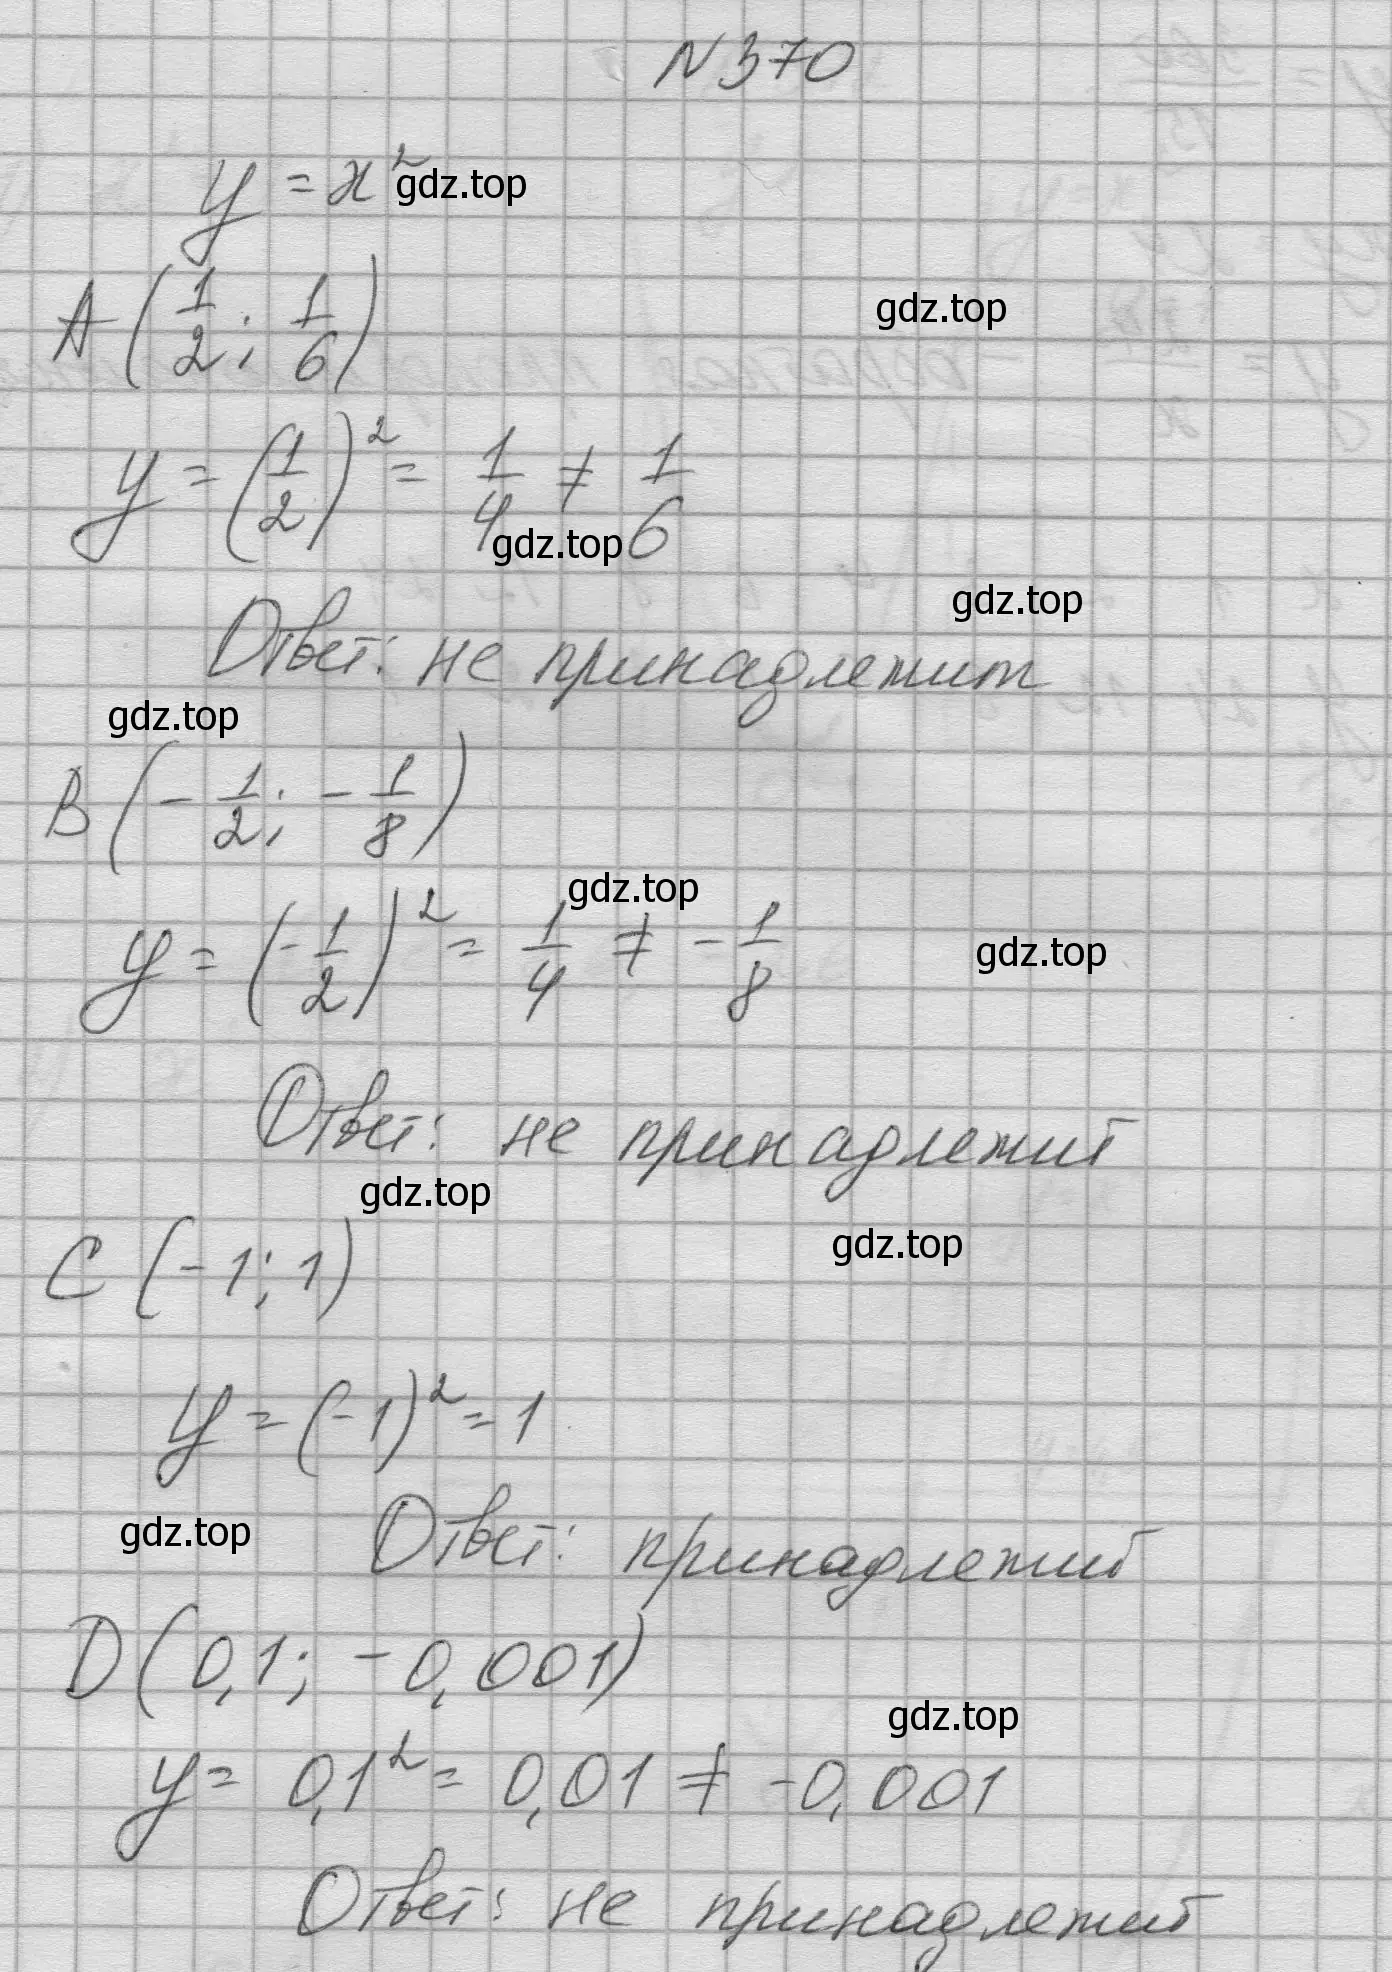 N 370
y = x²
gdz.top
A (1/2; 1/6)
gdz.top
y = (1/2)² = 1/4 ≠ 1/6
gdz.top
gdz.top
Ответ: не принадлежит
gdz.top
B (-1/2; -1/8)
gdz.top
y = (-1/2)² = 1/4 ≠ -1/8
gdz.top
Ответ: не принадлежит
gdz.top
gdz.top
C (-1; 1)
y = (-1)² = 1
gdz.top
Ответ: принадлежит
D (0,1; -0,001)
gdz.top
y = 0,1² = 0,01 ≠ -0,001
Ответ: не принадлежит